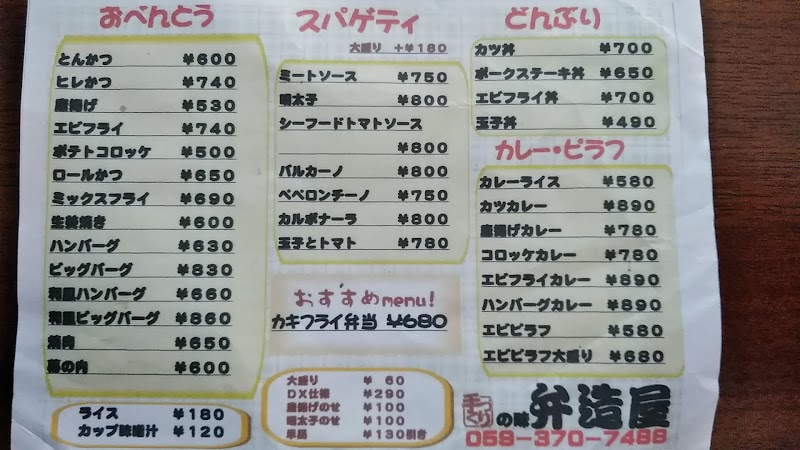 おべんとう
とんかつ ¥600
ヒレかつ ¥740
唐揚げ ¥530
エビフライ ¥740
ポテトコロッケ ¥500
ロールかつ ¥650
ミックスフライ ¥690
生姜焼き ¥600
ハンバーグ ¥630
ビッグバーグ ¥830
和風ハンバーグ ¥660
和風ビッグバーグ ¥860
焼肉 ¥650
幕の内 ¥600
ライス ¥180
カップ味噌汁 ¥120
スパゲティ
大盛り +¥180
ミートソース ¥750
明太子 ¥800
シーフードトマトソース
¥800
バルカーノ ¥800
ペペロンチーノ ¥750
カルボナーラ ¥800
玉子とトマト ¥780
おすすめmenu!
カキフライ弁当 ¥680
大盛り ¥ 60
DX仕様 ¥290
唐揚げのせ ¥100
明太子のせ ¥100
単品 ¥130引き
どんぶり
カツ丼 ¥700
ポークステーキ丼 ¥650
エビフライ丼 ¥700
玉子丼 ¥490
カレー・ピラフ
カレーライス ¥580
カツカレー ¥890
唐揚げカレー ¥780
コロッケカレー ¥780
エビフライカレー ¥890
ハンバーグカレー ¥890
エビピラフ ¥580
エビピラフ大盛り ¥680
手作りの味 弁造屋
059-370-7488